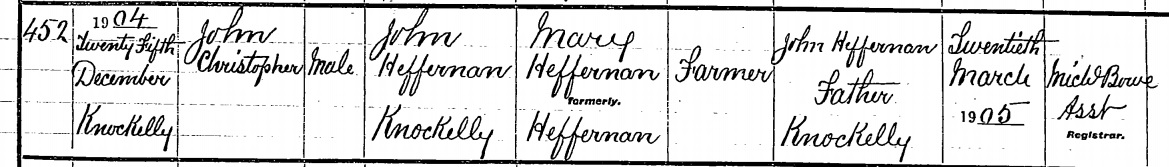 452
1904
Twenty Fifth
December
Knockelly
John
Christopher
Male
John
Heffernan
Knockelly
Mary
Heffernan
formerly.
Heffernan
Farmer
John Heffernan
Father
Knockelly
Twentieth
March
1905
Michl Bowe
Asst
Registrar.